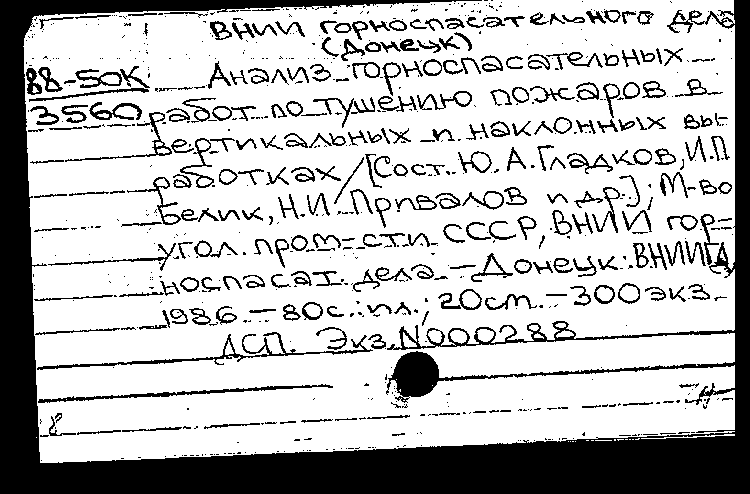 ВНИИ горноспасательного дела
(Донецк)
88-50К
3560
Анализ горноспасательных
работ по тушению пожаров в
вертикальных и наклонных вы-
работках / [Сост. Ю. А. Гладков, И.П
Белик, Н.И Привалов и др.]; М-во
угол. пром-сти СССР, ВНИИ гор-
носпасат. дела. – Донецк: ВНИИГД,
1986. – 80с.: ил.; 20см. – 300экз.
ДСП. Экз. N000288
8